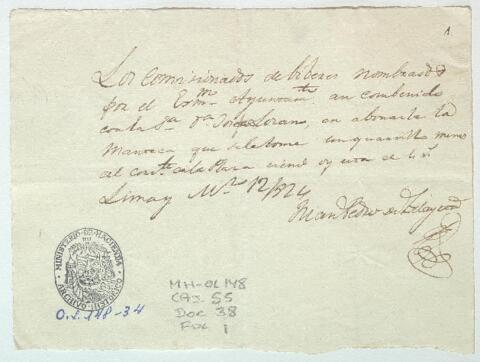 1
Los comisionados de biberes nombrados
por el Exmo. Ayuntamto. an combenido
con la Sa. Da. Josefa Lorano, en abonarle la
manteca que se le tome un quartillo menos
al corte. de la Plaza siendo oy esta de 4 rs.
Lima y Mzo. 12/824
Juan Pedro de Zelayeta
MINISTERIO DE HACIENDA
ARCHIVO HISTORICO
O.L. 148-34
MH-OL 148
CAJ. 55
DOC 38
FOL 1